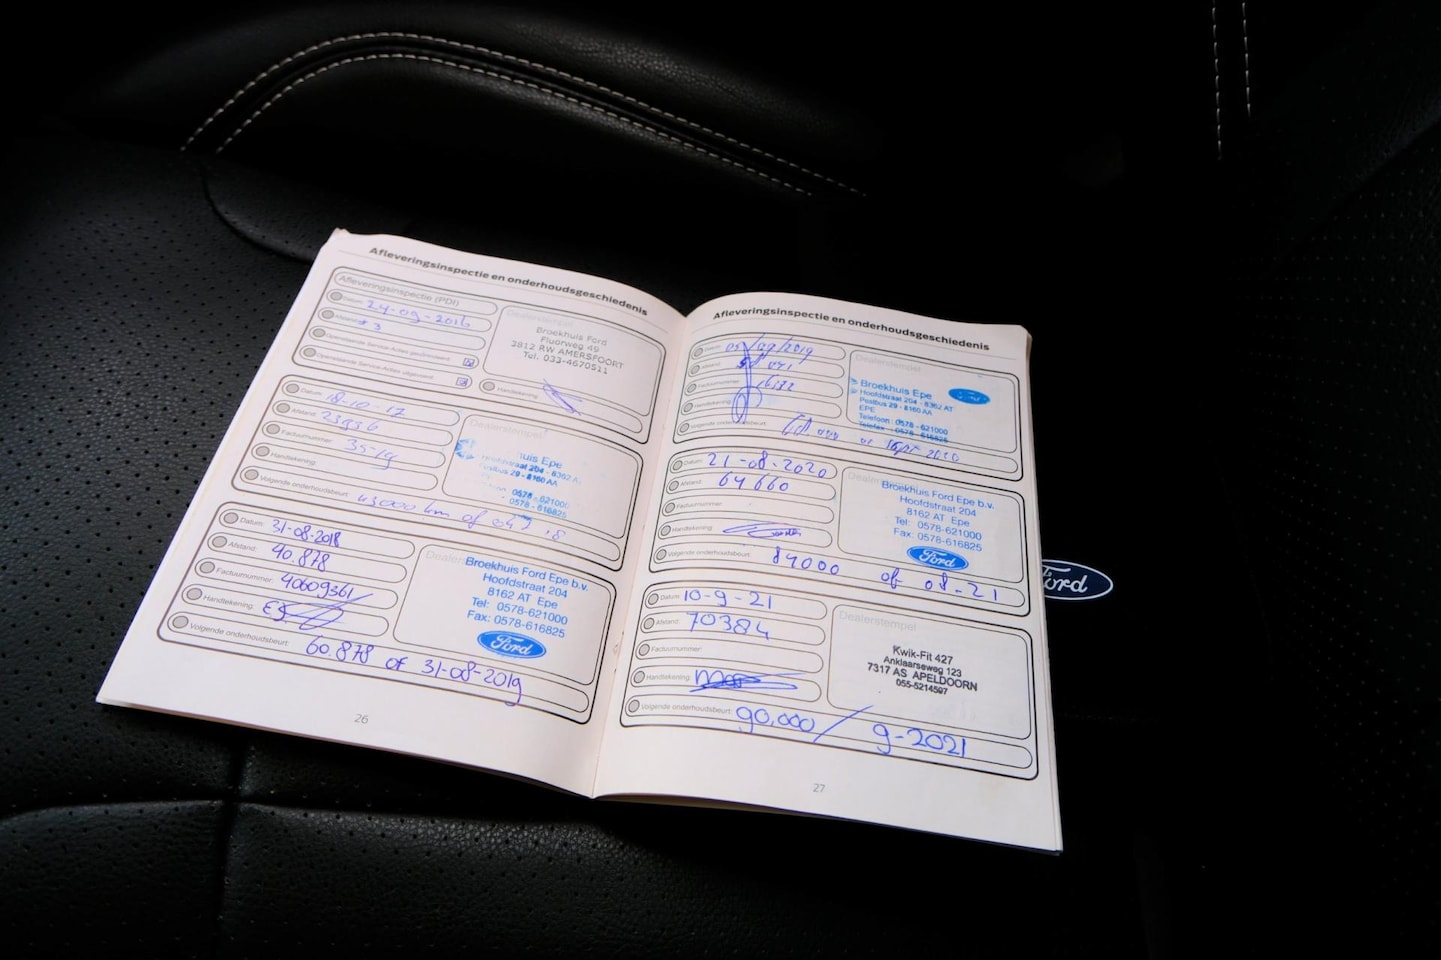 Afleveringsinspectie en onderhoudsgeschiedenis
Afleveringsinspectie (PDI)
Datum: 24-09-2016
Afstand: 3
Handtekening:
Dealerstempel
Broekhuis Ford
Fluorweg 49
3812 RW AMERSFOORT
Tel. 033-4670511
Datum: 18-10-17
Afstand: 23936
Factuurnummer:
Handtekening:
Volgende onderhoudsbeurt: 43000 km of
Dealerstempel
huis Epe
Hoofdstraat 204 - 8362 A
Postbus 29 - 8160 AA
0578 - 621000
0578 - 616825
Datum: 31-08-2018
Afstand: 40.878
Factuurnummer: 40609361
Handtekening:
Volgende onderhoudsbeurt: 60.878 of 31-08-2019
Dealerstempel
Broekhuis Ford Epe b.v.
Hoofdstraat 204
8162 AT Epe
Tel: 0578-621000
Fax: 0578-616825
Ford
26
Afleveringsinspectie en onderhoudsgeschiedenis
Datum:
Afstand:
Factuurnummer:
Handtekening:
Volgende onderhoudsbeurt: 2020
Dealerstempel
Broekhuis Epe
Hoofdstraat 204 - 8362 AT
Postbus 29 - 8160 AA
EPE
Telefoon: 0578 - 621000
Telefax: 0578 - 616825
Ford
Datum: 21-08-2020
Afstand: 64660
Factuurnummer:
Handtekening:
Volgende onderhoudsbeurt: 84000 of 08-21
Dealerstempel
Broekhuis Ford Epe b.v.
Hoofdstraat 204
8162 AT Epe
Tel: 0578-621000
Fax: 0578-616825
Ford
Datum: 10-9-21
Afstand: 70384
Factuurnummer:
Handtekening:
Volgende onderhoudsbeurt: 90,000/ 9-2021
Dealerstempel
Kwik-Fit 427
Anklaarseweg 123
7317 AS APELDOORN
055-5214597
27
Ford